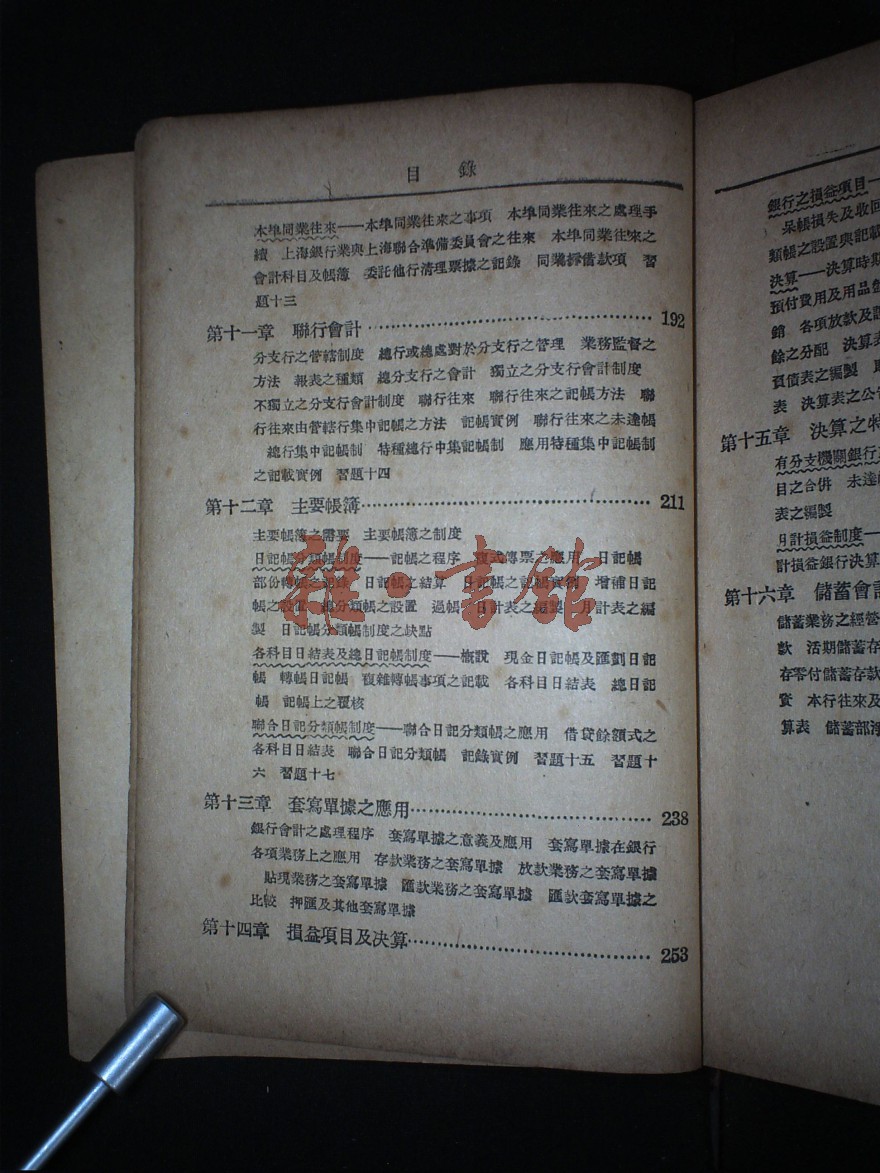 目錄
本埠同業往來——本埠同業往來之事項 本埠同業往來之處理手
續 上海銀行業與上海聯合準備委員會之往來 本埠同業往來之
會計科目及帳簿 委託他行清理票據之記錄 同業拆借款項 習
題十三
第十一章 聯行會計 192
分支行之管轄制度 總行或總處對於分支行之管理 業務監督之
方法 報表之種類 總分支行之會計 獨立之分支行會計制度
不獨立之分支行會計制度 聯行往來 聯行往來之記帳方法 聯
行往來由管轄行集中記帳之方法 記帳實例 聯行往來之未達帳
總行集中記帳制 特種總行中集記帳制 應用特種集中記帳制
之記載實例 習題十四
第十二章 主要帳簿 211
主要帳簿之需要 主要帳簿之制度
日記帳分類帳制度——記帳之程序 複式傳票之應用 日記帳
部份轉帳之記錄 日記帳之結算 日記帳之記帳實例 增補日記
帳之設置 總分類帳之設置 過帳 日計表之編製 月計表之編
製 日記帳分類帳制度之缺點
各科目日結表及總日記帳制度——概說 現金日記帳及匯劃日記
帳 轉帳日記帳 複雜轉帳事項之記載 各科目日結表 總日記
帳 記帳上之覆核
聯合日記分類帳制度——聯合日記分類帳之應用 借貸餘額式之
各科目日結表 聯合日記分類帳 記錄實例 習題十五 習題十
六 習題十七
第十三章 套寫單據之應用 238
銀行會計之處理程序 套寫單據之意義及應用 套寫單據在銀行
各項業務上之應用 存款業務之套寫單據 放款業務之套寫單據
貼現業務之套寫單據 匯款業務之套寫單據 匯款套寫單據之
比較 押匯及其他套寫單據
第十四章 損益項目及決算 253
雜·書館
銀行之損益項目—
呆帳損失及收回
類帳之設置與記載
決算——決算時期
預付費用及用品盤
銷 各項放款及
餘之分配 決算表
負債表之編製
表 決算表之公告
第十五章 決算之特
有分支機關銀行
目之合併 未達
表之編製
日計損益制度—
計損益銀行決算
第十六章 儲蓄會計
儲蓄業務之經營
款 活期儲蓄存
存零付儲蓄存款
資 本行往來及
算表 儲蓄部